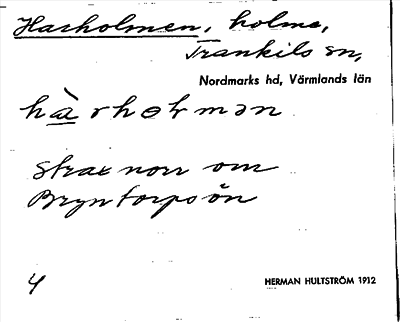 Harholmen, holme,
Trankils sn,
Nordmarks hd, Värmlands län
hàrholmən
strax norr om
Bryntorpsön
4
HERMAN HULTSTRÖM 1912